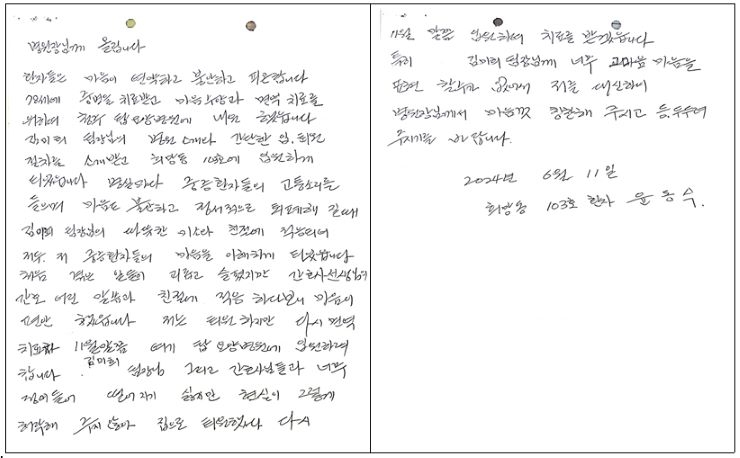 병원장님께 올립니다
환자들은 마음이 연약하고 불안하고 피곤합니다
72세에 치료받고 마음 수양과 면역 치료를
위하여 탑 요양병원에 내원 했습니다
김미희 팀장님의 병원 소개와 간단한 입.퇴원
절차를 소개받고 희망동 103호에 입원하게
되었습니다 중증환자들의 고통소리를
들으며 마음도 불안하고 정서적으로 퇴폐해 갈때
김미희 팀장님의 따뜻한 미소와 친절에 적응되어
저도 저 중증환자들의 마음을 이해하게 되었습니다
처음 겪는 일들이 괴롭고 슬펐지만 간호사선생님의
간호 어린 말씀과 친절에 적응 하다보니 마음이
편안 했습니다 저는 퇴원 하지만 다시 면역
치료차 11월말쯤 여기 탑요양병원에 입원하려
합니다 김미희 팀장님 그리고 간호사님들과 너무
정이들어 떨어지기 싫지만 현실이 그렇게
허락해 주지 않아 집으로 다시
11월 말쯤 입원하여 치료를 받겠습니다
특히 김미희 팀장님께 너무 고마운 마음을
표현 할수가 없어서 저를 대신하여
병원장님께서 마음껏 칭찬해 주시고 등.두두려
주시기를 바랍니다.
2024년 6월 11일
희망동 103호 환자 윤동수.